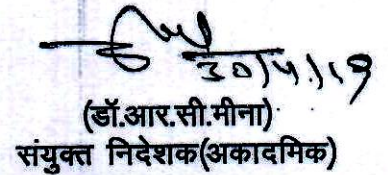 30/4/19
(डॉ.आर.सी.मीना)
संयुक्त निदेशक(अकादमिक)